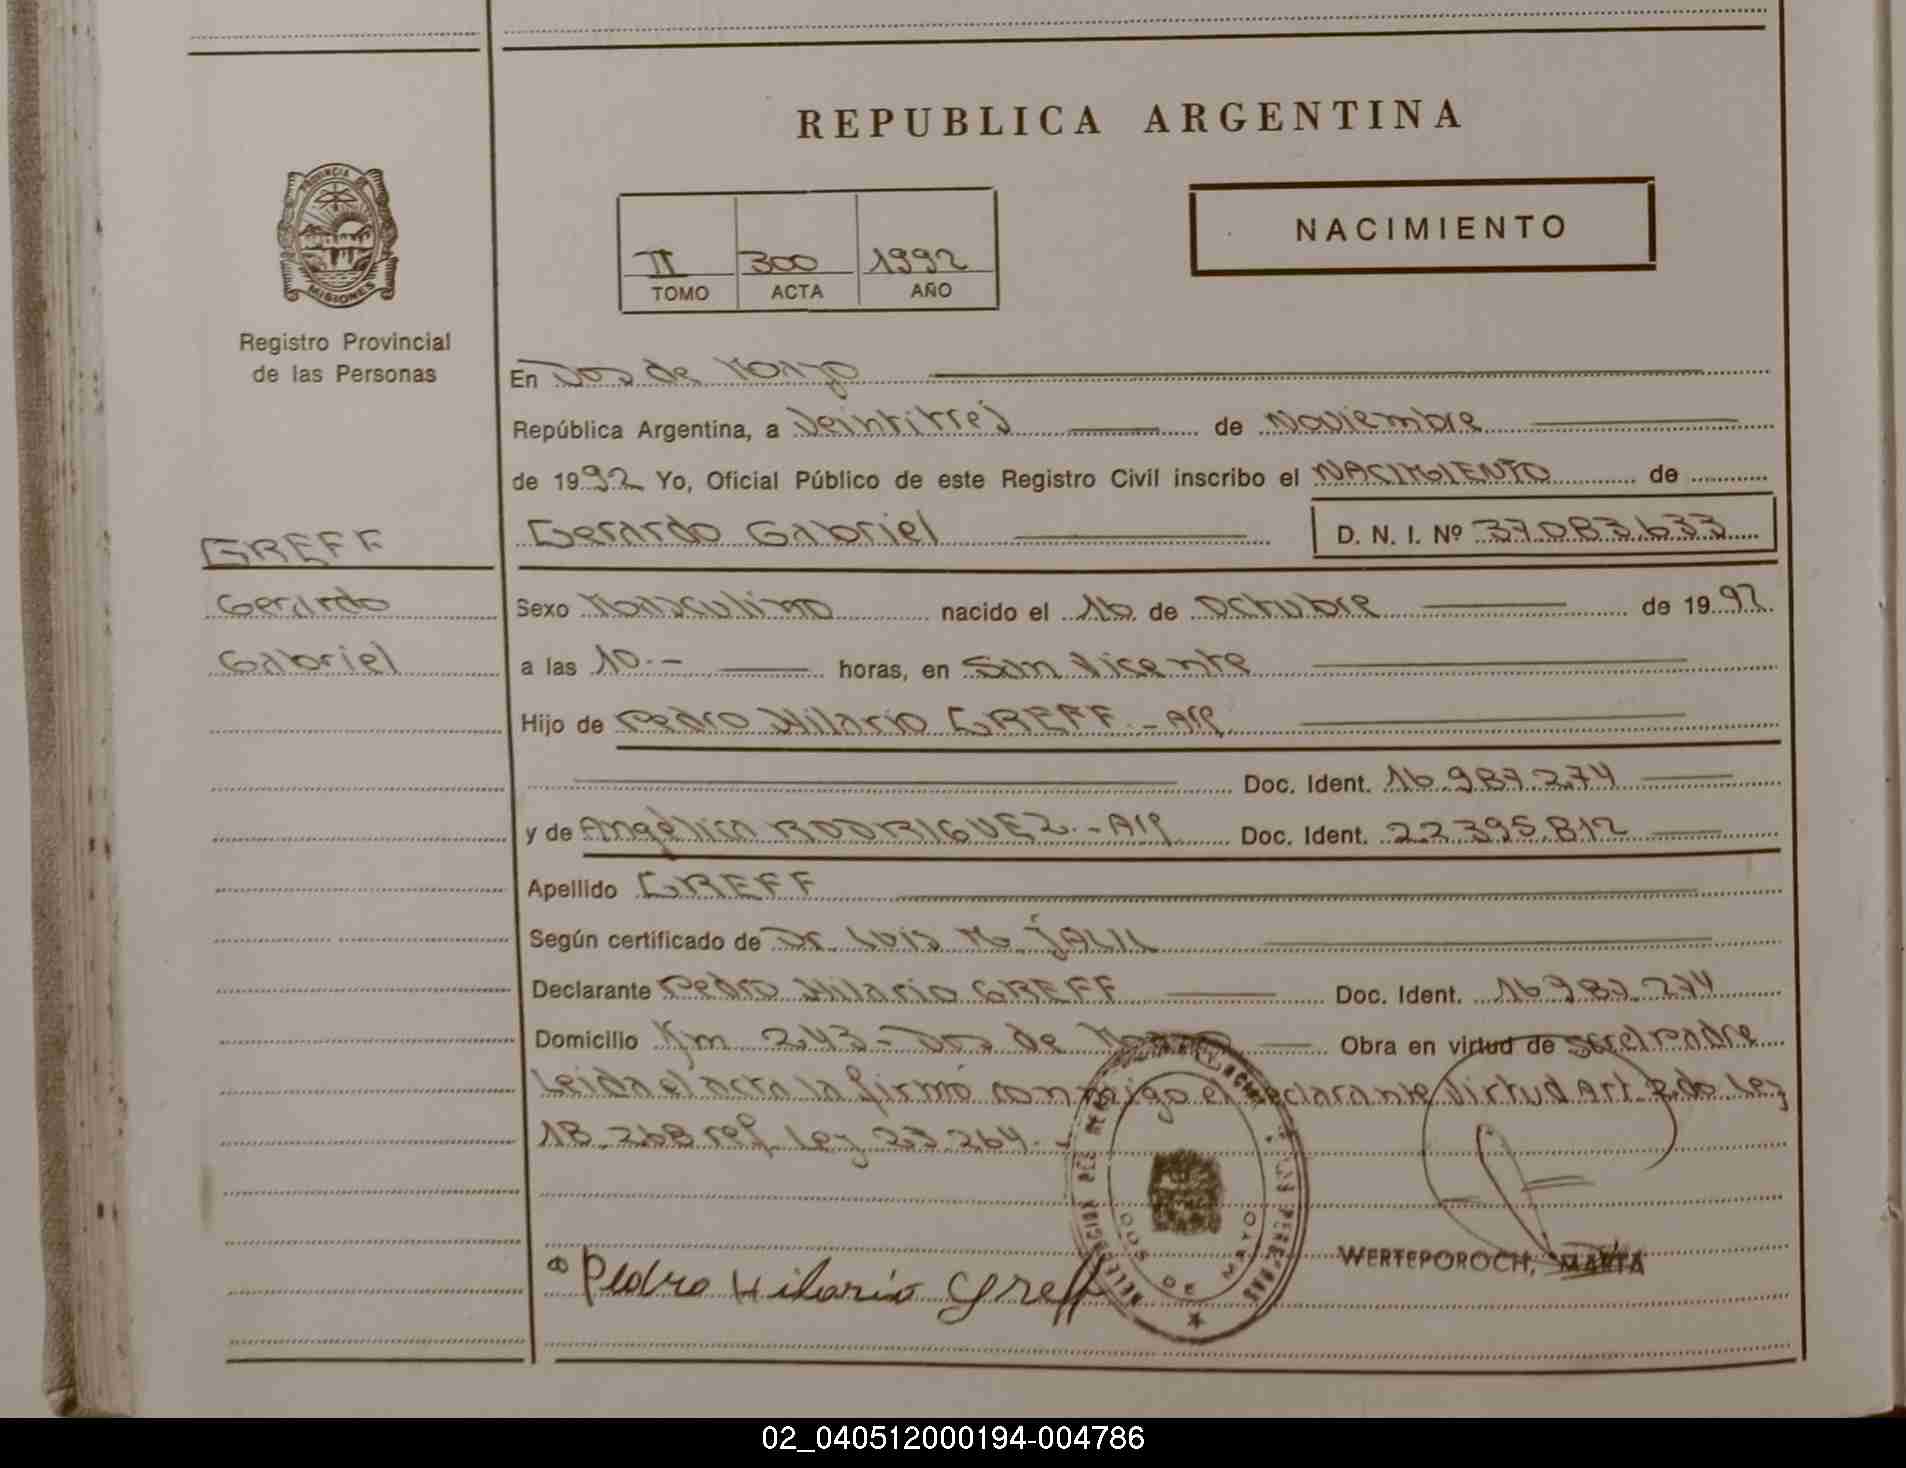 REPUBLICA ARGENTINA
PROVINCIA DE
MISIONES
Registro Provincial
de las Personas
II 300 1992
TOMO ACTA AÑO
NACIMIENTO
En Dos de Mayo
República Argentina, a Veintitres de Noviembre
de 1992 Yo, Oficial Público de este Registro Civil inscribo el NACIMIENTO de
GREFF
Gerardo
Gabriel
Gerardo Gabriel D. N. I. Nº 37.083.633
Sexo Masculino nacido el 16 de Octubre de 1992
a las 10.- horas, en San Vicente
Hijo de Pedro Hilario GREFF.-Arg
Doc. Ident. 16.987.274
y de Angélica RODRIGUEZ.-Arg Doc. Ident. 22.395.812
Apellido GREFF
Según certificado de Dr. Luis M. JALIL
Declarante Pedro Hilario GREFF Doc. Ident. 16.987.274
Domicilio Km 243-Dos de Mayo Obra en virtud de ser el Padre
Leida el acta la firmó conmigo el declarante Virtud Art. 2 de Ley
18.268 ref. Ley 23.264.-
DOS DE MAYO
Pedro Hilario Greff
WERTEPOROCH, MARTA
02_040512000194-004786